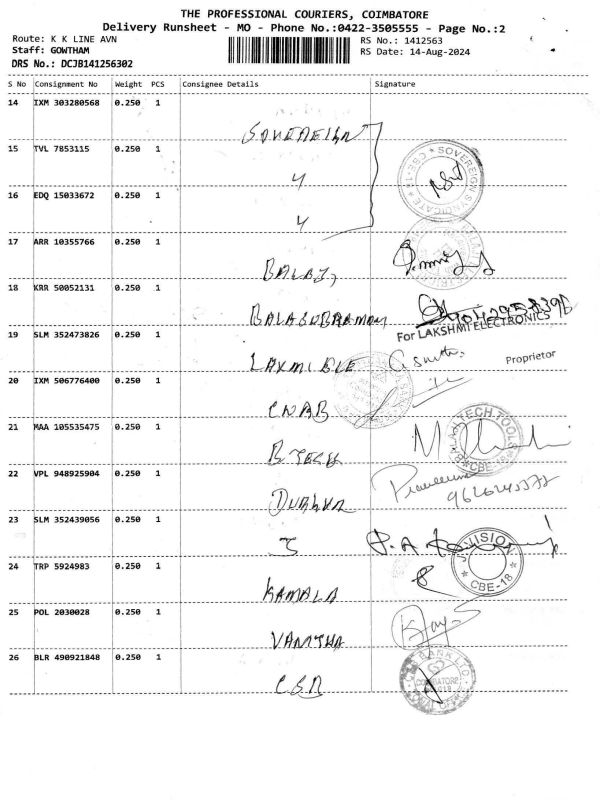 THE PROFESSIONAL COURIERS, COIMBATORE
Delivery Runsheet - MO - Phone No.:0422-3505555 - Page No.:2
Route: K K LINE AVN RS No.: 1412563
Staff: GOWTHAM RS Date: 14-Aug-2024
DRS No.: DCJB141256302
S No Consignment No Weight PCS Consignee Details Signature
14 IXM 303280568 0.250 1
SOVEREIGN
15 TVL 7853115 0.250 1
SOVEREIGN SYNDICATE * CBE-18 *
16 EDQ 15033672 0.250 1
17 ARR 10355766 0.250 1
BALAJI
18 KRR 50052131 0.250 1
BALASUBRAMANI
For LAKSHMI ELECTRONICS
19 SLM 352473826 0.250 1
LAXMI ELE
Proprietor
20 IXM 506776400 0.250 1
CNAB
21 MAA 105535475 0.250 1
B TECH
TECH TOOLS * CBE-18 *
22 VPL 948925904 0.250 1
23 SLM 352439056 0.250 1
J
VISION * CBE-18 *
24 TRP 5924983 0.250 1
KAMALA
25 POL 2030028 0.250 1
VANITHA
26 BLR 490921848 0.250 1
BANK LTD.
COIMBATORE